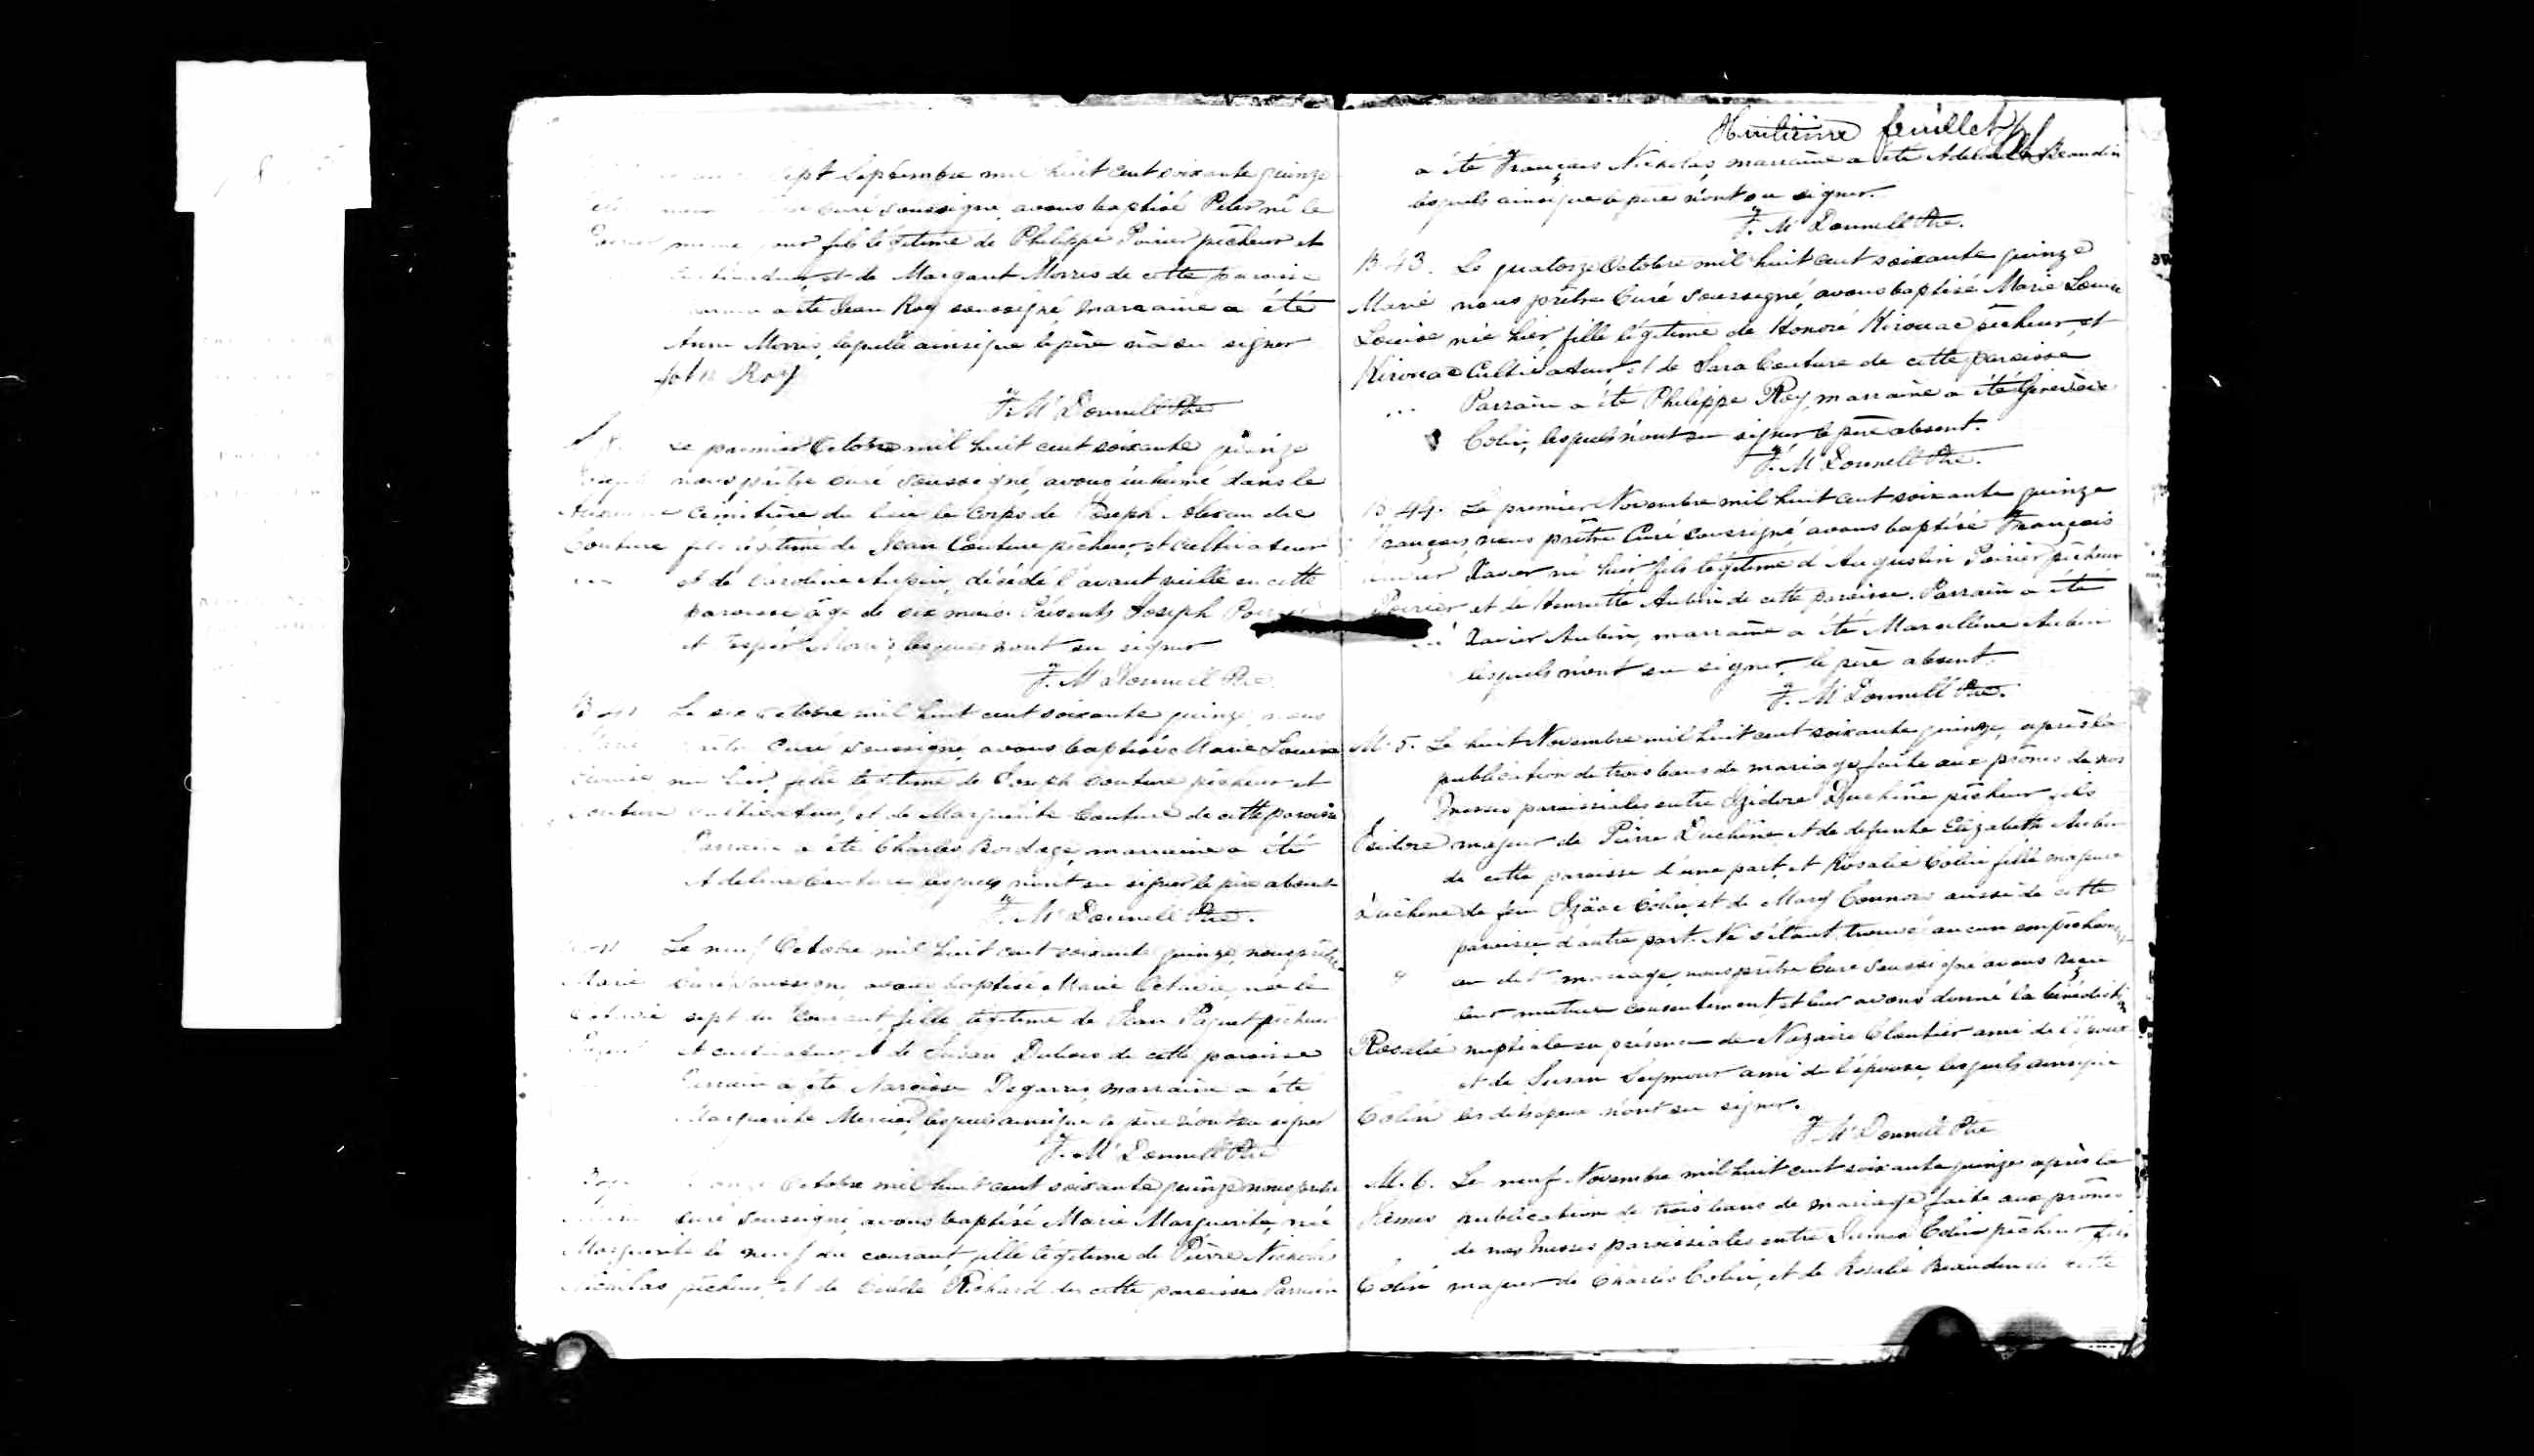 sept Septembre mil huit cent soixante quinze
curé soussigné avons baptisé Peter né le
Poirier même jour fils légitime de Philippe Poirier pêcheur et
et de Margaret Morris de cette paroisse
a été Jean Roy soussigné marraine a été
Anne Morris, laquelle ainsique le père n'a su signer
John Roy
F. McDonnell Ptre
Le premier Octobre mil huit cent soixante quinze
Joseph nous prêtre curé soussigné, avons inhumé dans le
cimitière du lieu le corps de Joseph Alexandre
Couture fils légitime de Jean Couture pêcheur et cultivateur
et de Caroline, décédé l'avant veille en cette
paroisse âgé de six mois. Présents Joseph
et Morris, lesquels n'ont su signer
F. McDonnell Ptre
Le six Octobre mil huit cent soixante quinze, nous
Marie prêtre Curé soussigné, avons baptisé Marie Louise
Louise née hier, fille légitime de Joseph Couture pêcheur et
Couture cultivateur, et de Marguerite Couture de cette paroisse
Parrain a été Charles Bordage, marraine a été
Adeline Couture lesquels n'ont su signer le père absent
F. McDonnell Ptre.
Le neuf Octobre mil huit cent soixante quinze, nous prêtre
Marie curé soussigné, avons baptisé Marie Octavie, née le
Octavie sept du courant, fille légitime de Jean Paquet pêcheur
et cultivateur et de Susan Dubois de cette paroisse
Parrain a été Narcisse, marraine a été
Marguerite Mercier, lesquels ainsique le père n'ont su signer
F. McDonnell Ptre
Octobre mil huit cent soixante quinze nous prêtre
Marie curé soussigné, avons baptisé Marie Marguerite, née
Marguerite le neuf du courant, fille légitime de Pierre Nicholas
Nicholas pêcheur, et de Richard de cette paroisse Parrain
Huitième feuillet
a été François Nicholas, marraine a été Beaudin
lesquels ainsique le père n'ont su signer.
F. McDonnell Ptre.
B. 43. Le quatorze Octobre mil huit cent soixante quinze
Marie nous prêtre Curé soussigné, avons baptisé Marie Louise
Louise née hier, fille légitime de Honoré Kirouac pêcheur, et
Kirouac Cultivateur et de Sara Couture de cette paroisse
Parrain a été Philippe Roy, marraine a été Geneviève
Colin, lesquels n'ont su signer le père absent.
F. McDonnell Ptre.
B 44. Le premier Novembre mil huit cent soixante quinze
François, nous prêtre Curé soussigné avons baptisé François
Xavier Xavier né hier fils légitime d'Augustin Poirier pêcheur
Poirier et de Henriette Aubin de cette paroisse. Parrain a été
Xavier Aubin, marraine a été Marceline Aubin
lesquels n'ont su signer, le père absent.
F. McDonnell Ptre.
M. 5. Le huit Novembre mil huit cent soixante quinze, après la
publication de trois bans de mariage faite aux prônes de nos
Messes paroissiales entre Izidore Duchêne pêcheur, fils
Isidore majeur de Pierre Duchêne et de defunte Elizabeth Aubin
de cette paroisse d'une part, et Rosalie Colin fille majeure
Duchêne de feu Izäac Colin, et de Mary Connors aussi de cette
paroisse, d'autre part. Ne s'étant trouvé aucun empêchement
au dit mariage, nous prêtre Curé soussigné avons reçu
leur mutuel consentement et leur avons donné la bénédiction
Rosalie nuptiale en présence de Nazaire Cloutier ami de l'époux
et de Susan Seymour ami de l'épouse, lesquels ainsique
Colin les dits époux n'ont su signer.
F. McDonnell Ptre
M. 6. Le neuf Novembre mil huit cent soixante quinze après la
James publication de trois bans de mariage faite aux prônes
de nos Messes paroissiales entre James Colin pêcheur fils
Colin majeur de Charles Colin, et de Rosalie Beaudin de cette